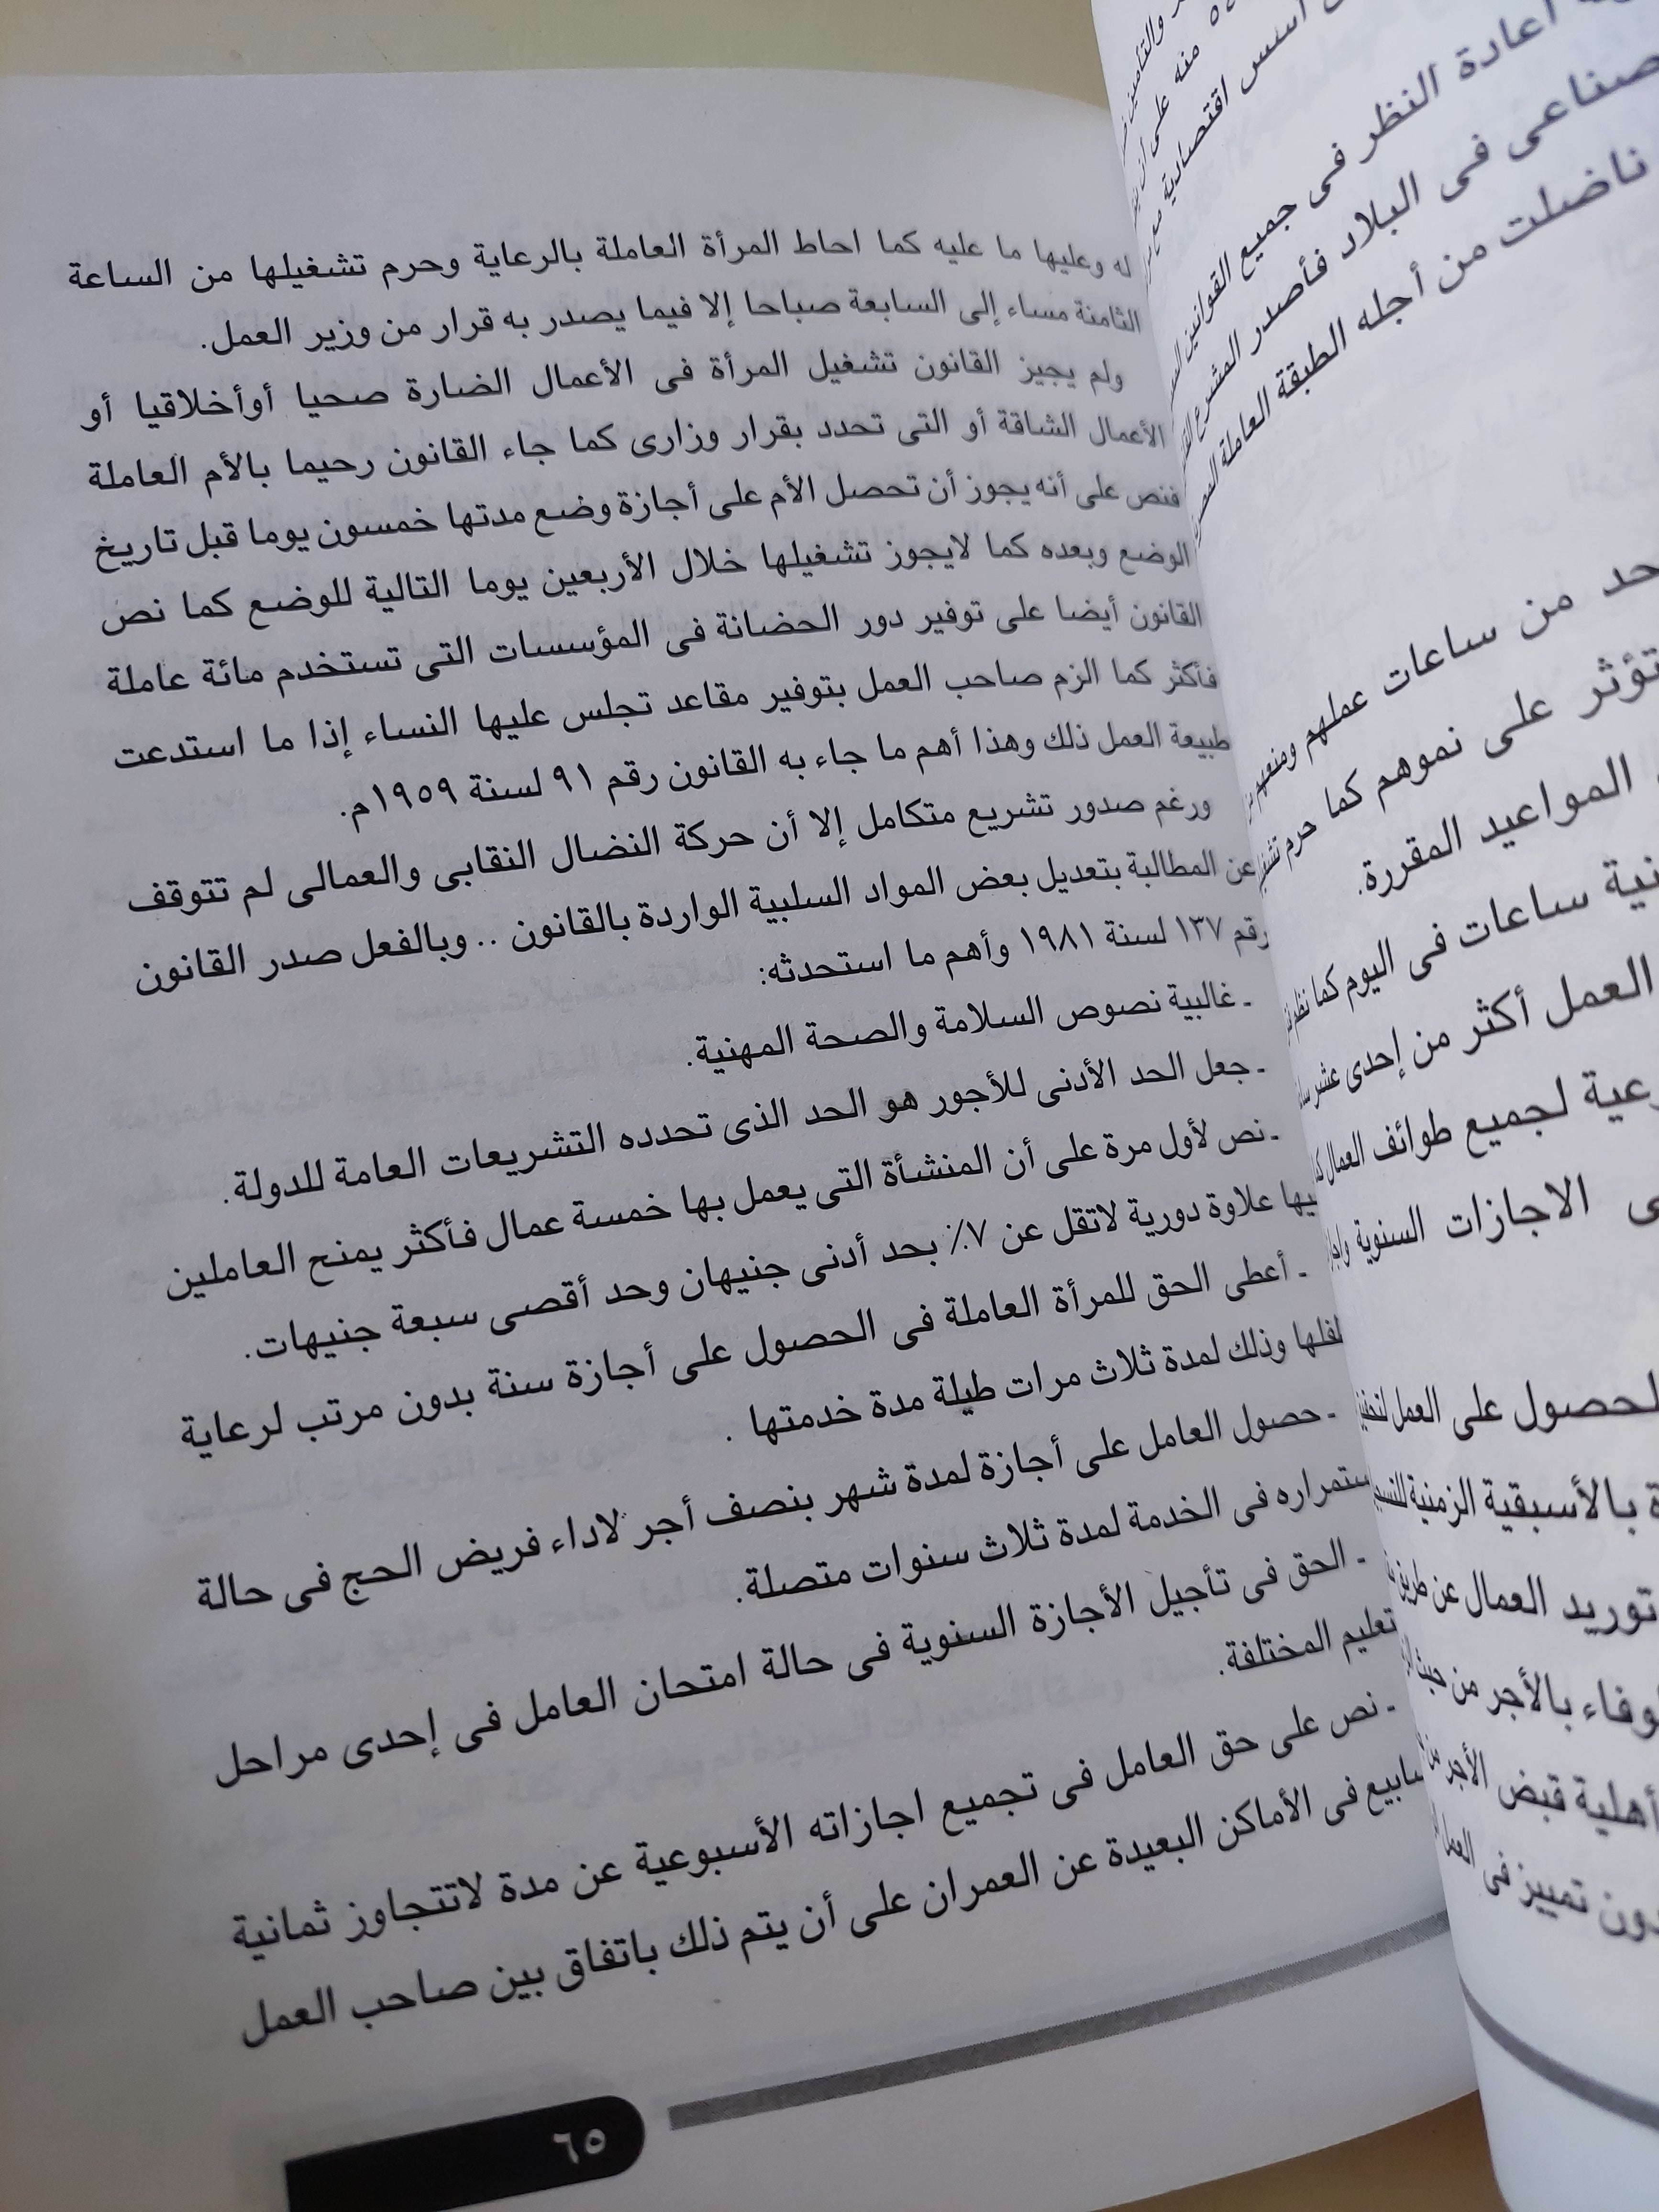 له وعليها ما عليه كما احاط المرأة العاملة بالرعاية وحرم تشغيلها من الساعة
الثامنة مساء إلى السابعة صباحا إلا فيما يصدر به قرار من وزير العمل.
ولم يجيز القانون تشغيل المرأة فى الأعمال الضارة صحيا أوأخلاقيا أو
الأعمال الشاقة أو التى تحدد بقرار وزارى كما جاء القانون رحيما بالأم العاملة
فنص على أنه يجوز أن تحصل الأم على أجازة وضع مدتها خمسون يوما قبل تاريخ
الوضع وبعده كما لايجوز تشغيلها خلال الأربعين يوما التالية للوضع كما نص
القانون أيضا على توفير دور الحضانة فى المؤسسات التى تستخدم مائة عاملة
فأكثر كما الزم صاحب العمل بتوفير مقاعد تجلس عليها النساء إذا ما استدعت
طبيعة العمل ذلك وهذا أهم ما جاء به القانون رقم ٩١ لسنة ١٩٥٩م.
ورغم صدور تشريع متكامل إلا أن حركة النضال النقابى والعمالى لم تتوقف
عن المطالبة بتعديل بعض المواد السلبية الواردة بالقانون .. وبالفعل صدر القانون
رقم ١٣٧ لسنة ١٩٨١ وأهم ما استحدثه:
- غالبية نصوص السلامة والصحة المهنية.
- جعل الحد الأدنى للأجور هو الحد الذى تحدده التشريعات العامة للدولة.
- نص لأول مرة على أن المنشأة التى يعمل بها خمسة عمال فأكثر يمنح العاملين
علاوة دورية لاتقل عن ٧٪ بحد أدنى جنيهان وحد أقصى سبعة جنيهات.
- أعطى الحق للمرأة العاملة فى الحصول على أجازة سنة بدون مرتب لرعاية
وذلك لمدة ثلاث مرات طيلة مدة خدمتها .
- حصول العامل على أجازة لمدة شهر بنصف أجر لاداء فريض الحج فى حالة
ستمراره فى الخدمة لمدة ثلاث سنوات متصلة.
- الحق فى تأجيل الأجازة السنوية فى حالة امتحان العامل فى إحدى مراحل
تعليم المختلفة.
- نص على حق العامل فى تجميع اجازاته الأسبوعية عن مدة لاتتجاوز ثمانية
سابيع فى الأماكن البعيدة عن العمران على أن يتم ذلك باتفاق بين صاحب العمل
٦٥
منه على أن
أسس اقتصادية
أعادة النظر فى جميع القوانين
صناعى فى البلاد فأصدر المشرع
ناضلت من أجله الطبقة العاملة
حد من ساعات عملهم ومنعهم
تؤثر على نموهم كما حرم
المواعيد المقررة.
ساعات فى اليوم كما
العمل أكثر من إحدى عشر
لجميع طوائف العمال
الاجازات السنوية
لحصول على العمل
بالأسبقية الزمنية
توريد العمال عن طريق
وفاء بالأجر من حيث
أهلية قبض الأجر
دون تمييز فى العمل